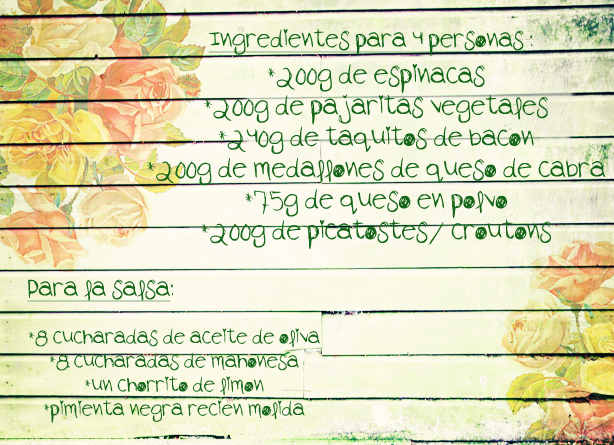 Ingredientes para 4 personas:
*200g de espinacas
*200g de pajaritas vegetales
*240g de taquitos de bacon
*200g de medallones de queso de cabra
*75g de queso en polvo
*200g de picatostes/ croutons
Para la salsa:
*8 cucharadas de aceite de oliva
*8 cucharadas de mahonesa
*un chorrito de limon
*pimienta negra recien molida